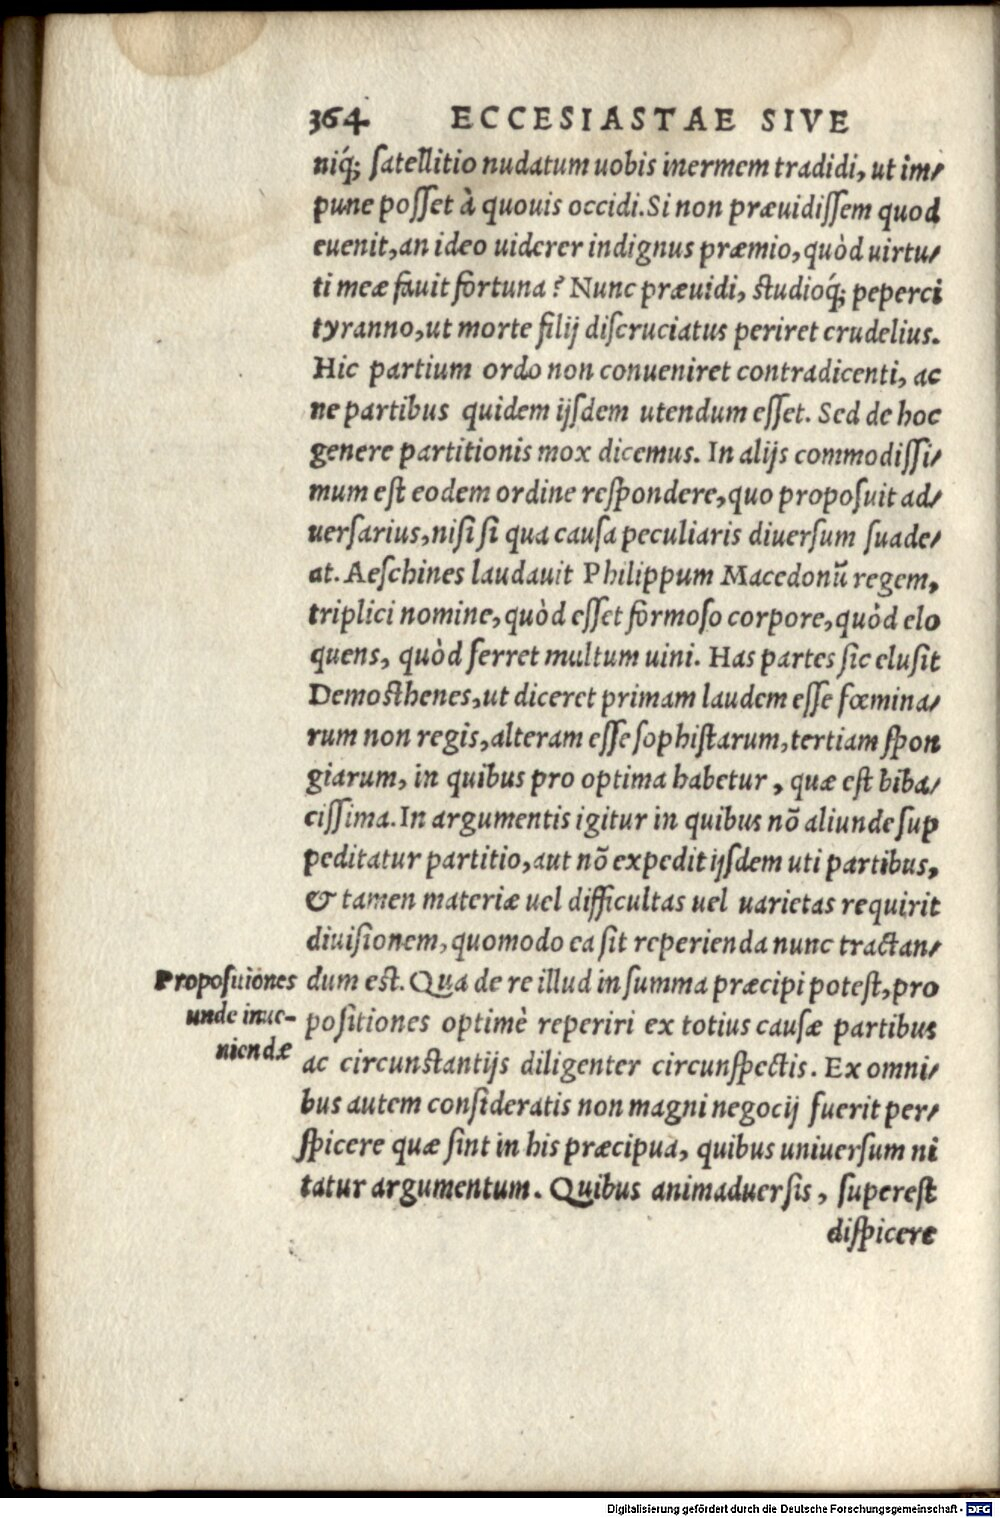 364 ECCESIASTAE SIVE
niq́; ſatellitio nudatum uobis inermem tradidi, ut im⸗
pune poſſet à quouis occidi. Si non præuidiſſem quod
euenit, an ideo uiderer indignus præmio, quòd uirtu⸗
ti meæ fauit fortuna? Nunc præuidi, ſtudioq́; peperci
tyranno, ut morte filij diſcruciatus periret crudelius.
Hic partium ordo non conueniret contradicenti, ac
ne partibus quidem ijſdem utendum eſſet. Sed de hoc
genere partitionis mox dicemus. In alijs commodiſſi⸗
mum eſt eodem ordine reſpondere, quo propoſuit ad⸗
uerſarius, niſi ſi qua cauſa peculiaris diuerſum ſuade⸗
at. Aeſchines laudauit Philippum Macedonũ regem,
triplici nomine, quòd eſſet formoſo corpore, quòd elo
quens, quòd ferret multum uini. Has partes ſic eluſit
Demoſthenes, ut diceret primam laudem eſſe fœmina⸗
rum non regis, alteram eſſe ſophiſtarum, tertiam ſpon
giarum, in quibus pro optima habetur, quæ eſt biba⸗
ciſſima. In argumentis igitur in quibus nõ aliunde ſup
peditatur partitio, aut nõ expedit ijſdem uti partibus,
& tamen materiæ uel difficultas uel uarietas requirit
diuiſionem, quomodo ea ſit reperienda nunc tractan⸗
Propoſitiones
unde inue-
niendæ
dum eſt. Qua de re illud in ſumma præcipi poteſt, pro
poſitiones optimè reperiri ex totius cauſæ partibus
ac circunſtantijs diligenter circunſpectis. Ex omni⸗
bus autem conſideratis non magni negocij fuerit per⸗
ſpicere quæ ſint in his præcipua, quibus uniuerſum ni
tatur argumentum. Quibus animaduerſis, ſupereſt
diſpicere
Digitalisierung gefördert durch die Deutsche Forschungsgemeinschaft - DFG